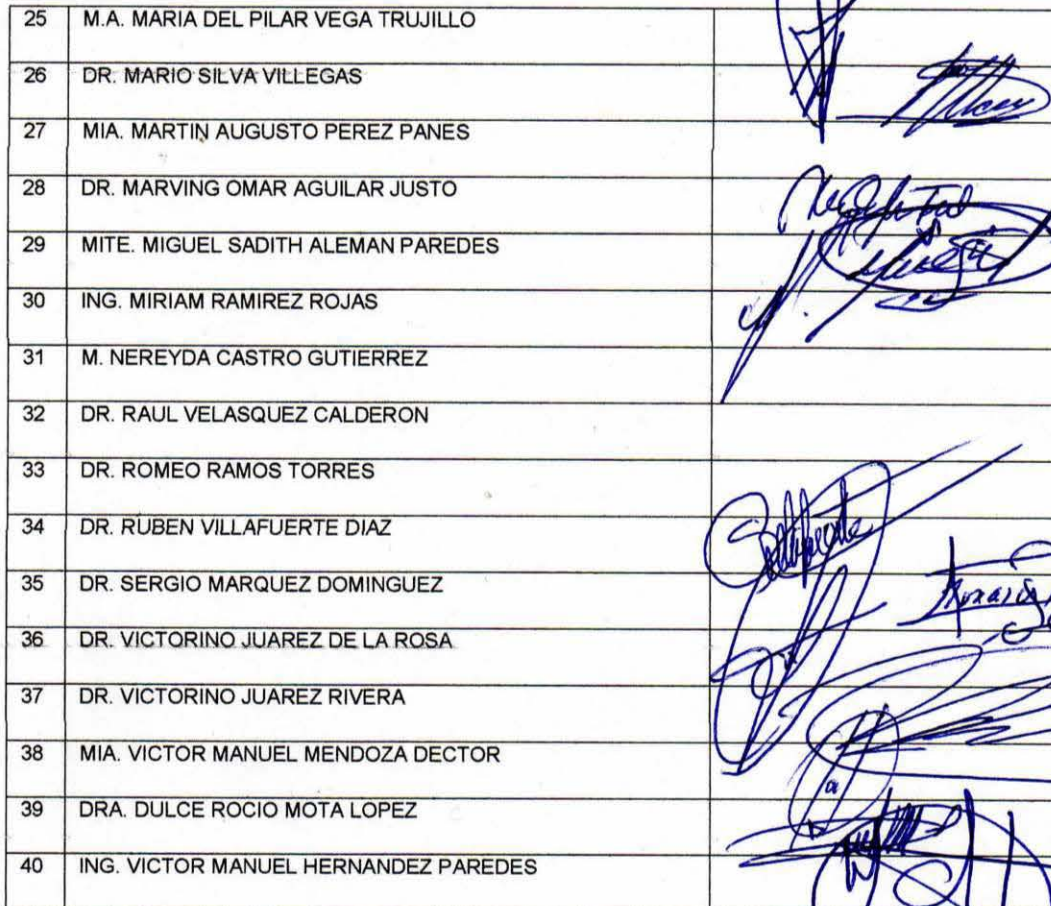 25 M.A. MARIA DEL PILAR VEGA TRUJILLO
26 DR. MARIO SILVA VILLEGAS
27 MIA. MARTIN AUGUSTO PEREZ PANES
28 DR. MARVING OMAR AGUILAR JUSTO
29 MITE. MIGUEL SADITH ALEMAN PAREDES
30 ING. MIRIAM RAMIREZ ROJAS
31 M. NEREYDA CASTRO GUTIERREZ
32 DR. RAUL VELASQUEZ CALDERON
33 DR. ROMEO RAMOS TORRES
34 DR. RUBEN VILLAFUERTE DIAZ
35 DR. SERGIO MARQUEZ DOMINGUEZ
36 DR. VICTORINO JUAREZ DE LA ROSA
37 DR. VICTORINO JUAREZ RIVERA
38 MIA. VICTOR MANUEL MENDOZA DECTOR
39 DRA. DULCE ROCIO MOTA LOPEZ
40 ING. VICTOR MANUEL HERNANDEZ PAREDES